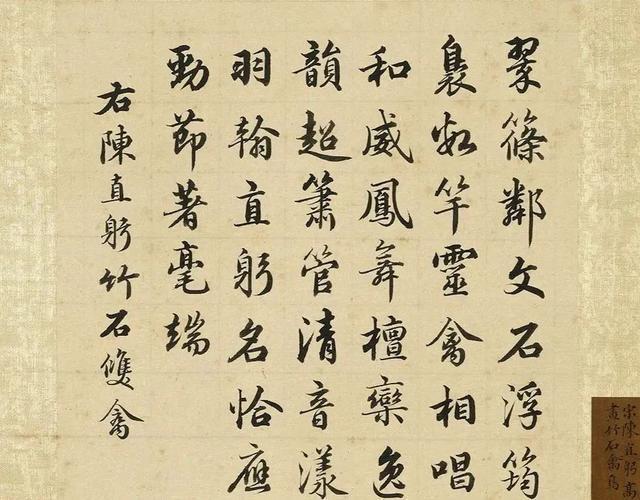 翠篠鄰文石浮筠
裊數竿靈禽相唱
和威鳳舞檀欒逸
韻超簫管清音漾
羽翰直躬名恰應
勁節著毫端
右陳直躬竹石雙禽
宋陳直躬
畫竹石禽